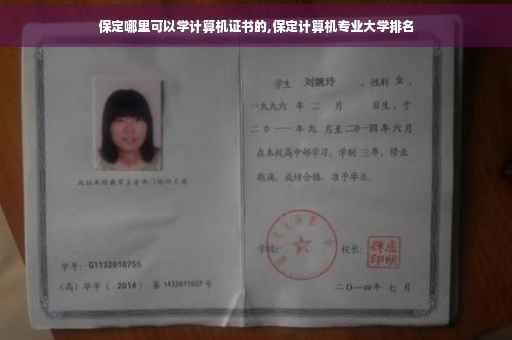 保定哪里可以学计算机证书的,保定计算机专业大学排名
学生 刘婉玲 ，性别 女 ，
一九九六 年 二 月 日生，于
二〇一一 年 九 月至 二〇一四 年 六 月
在本校高中部学习，学制 三 年，修业
期满，成绩合格，准予毕业。
学校： 校长：
学号： G1132010755
（高）毕字（ 2014 ）第 1432011027 号
二〇一四年 七 月